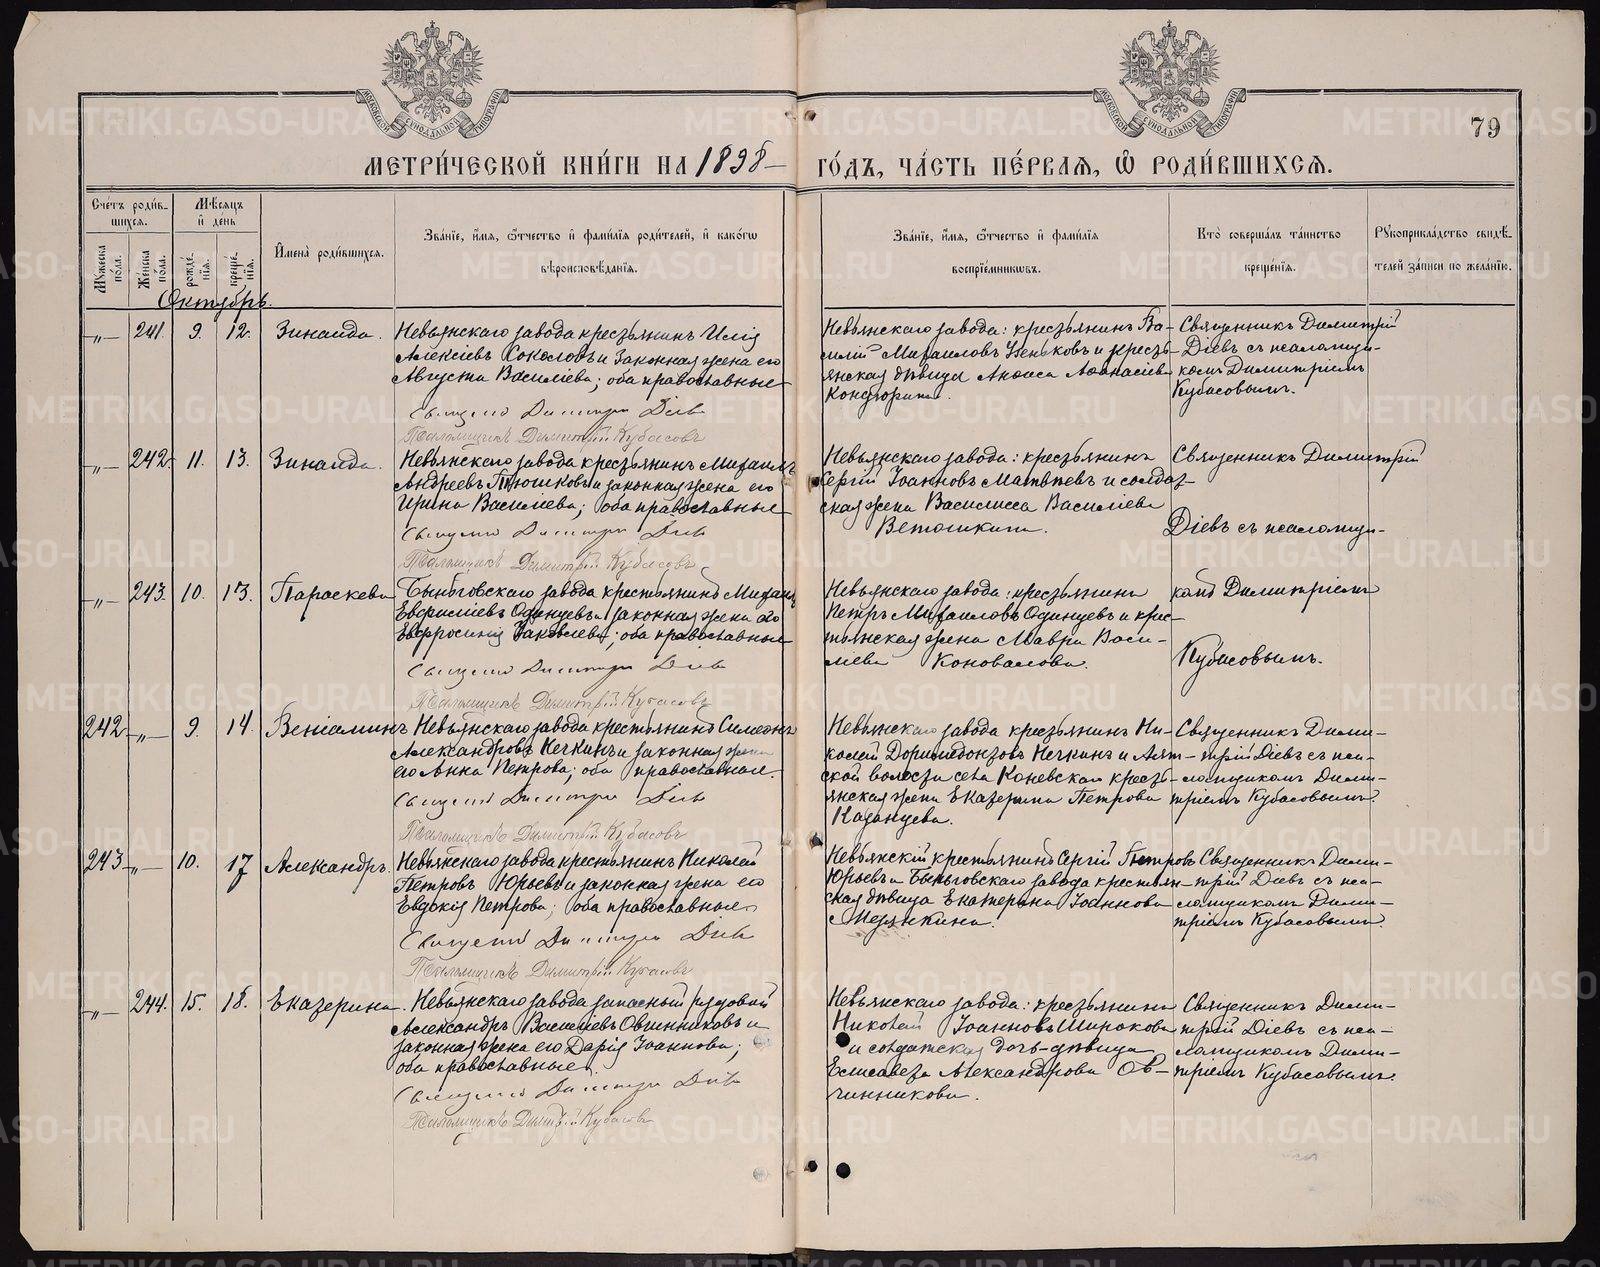 79
МЕТРИ́ЧЕСКОЙ КНИ́ГИ НА 1898 ГО́ДЪ, ЧА́СТЬ ПЕ́РВАЯ, Ѡ РОДИ́ВШИХСЯ.
Сче́тъ роди́в-
шихся.
Мѣ́сяцъ
и де́нь
И́мена роди́вшихся.
Зва́нїе, и́мя, ѻ҆́тчество и фами́лїя роди́телей, и како́гѡ
вѣроисповѣ́данїя.
Зва́нїе, и́мя, ѻ҆́тчество и фами́лїя
воспрїе́мниковъ.
Кто̀ соверша́лъ та́инство
креще́нїя.
Рꙋкоприкла́дство свидѣ́-
телей за́писи по жела́нїю.
Мꙋ́жеска по́ла.
Же́нска по́ла.
рожде́нїя.
креще́нїя.
Октубрь.
„ 241. 9. 12. Зинаида.
Невьянскаго завода крестьянинъ Илія
Алексіевъ Соколовъ и законная жена его
Августа Василіева; оба православные
Священникъ Димитрій Діевъ
Псаломщикъ Димитрій Кубасовъ
Невьянскаго завода: крестьянинъ Ва-
силій Михаиловъ и кресть-
янская дѣвица Аѳанасіева
Священникъ Димитрій
Діевъ съ псаломщи-
комъ Димитріемъ
Кубасовымъ.
„ 242. 11. 13. Зинаида.
Невьянскаго завода крестьянинъ Михаилъ
Андреевъ и законная жена его
Ирина Василіева; оба православные
Священникъ Димитрій Діевъ
Псаломщикъ Димитрій Кубасовъ
Невьянскаго завода: крестьянинъ
Сергій Іоанновъ Матвѣевъ и солдат-
ская жена Василисса Василіева
Ветошкина.
Священникъ Димитрій
Діевъ съ псаломщи-
„ 243. 10. 13. Параскева
Быньговскаго завода крестьянинъ Михаилъ
Одинцевъ и законная жена его
Евфросинія Іаковлева; оба православные
Священникъ Димитрій Діевъ
Псаломщикъ Димитрій Кубасовъ
Невьянскаго завода: крестьянинъ
Петръ Михаиловъ Одинцевъ и крес-
тьянская жена Мавра Васи-
лева Коновалова.
комъ Димитріемъ
Кубасовымъ.
242 „ 9. 14. Веніаминъ
Невьянскаго завода крестьянинъ Симеонъ
Александровъ Нечкинъ и законная жена
его Анна Петрова; оба православные.
Священникъ Димитрій Діевъ
Псаломщикъ Димитрій Кубасовъ
Невьянскаго завода крестьянинъ Ни-
колай Доримедонтовъ Нечкинъ и Аят-
ской волости села Коневскаго кресть-
янская жена Екатерина Петрова
Казанцева.
Священникъ Дими-
трій Діевъ съ пса-
ломщикомъ Дими-
тріемъ Кубасовымъ.
243 „ 10. 17 Александръ.
Невьянскаго завода крестьянинъ Николай
Петровъ Юрьевъ и законная жена его
Евдокія Петрова; оба православные
Священникъ Димитрій Діевъ
Псаломщикъ Димитрій Кубасовъ
Невьянскій крестьянинъ Сергій Петровъ
Юрьевъ и Быньговскаго завода крестьян-
ская дѣвица Екатерина Іоаннова
Мерзкина.
Священникъ Дими-
трій Діевъ съ пса-
ломщикомъ Дими-
тріемъ Кубасовымъ.
„ 244. 15. 18. Екатерина
Невьянскаго завода запасный рядовой
Александръ Василіевъ Овчинниковъ и
законная жена его Дарія Іоаннова;
оба православные
Священникъ Димитрій Діевъ
Псаломщикъ Димитрій Кубасовъ
Невьянскаго завода: крестьянинъ
Николай Іоанновъ Широковъ
и солдатская дочь-дѣвица
Елисавета Александрова Ов-
чинникова.
Священникъ Дими-
трій Діевъ съ пса-
ломщикомъ Дими-
тріемъ Кубасовымъ.
METRIKI.GASO-URAL.RU